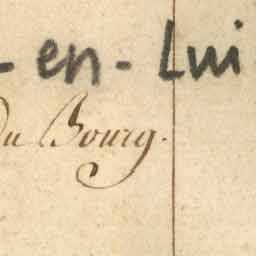 - en - Lui
Du Bourg.